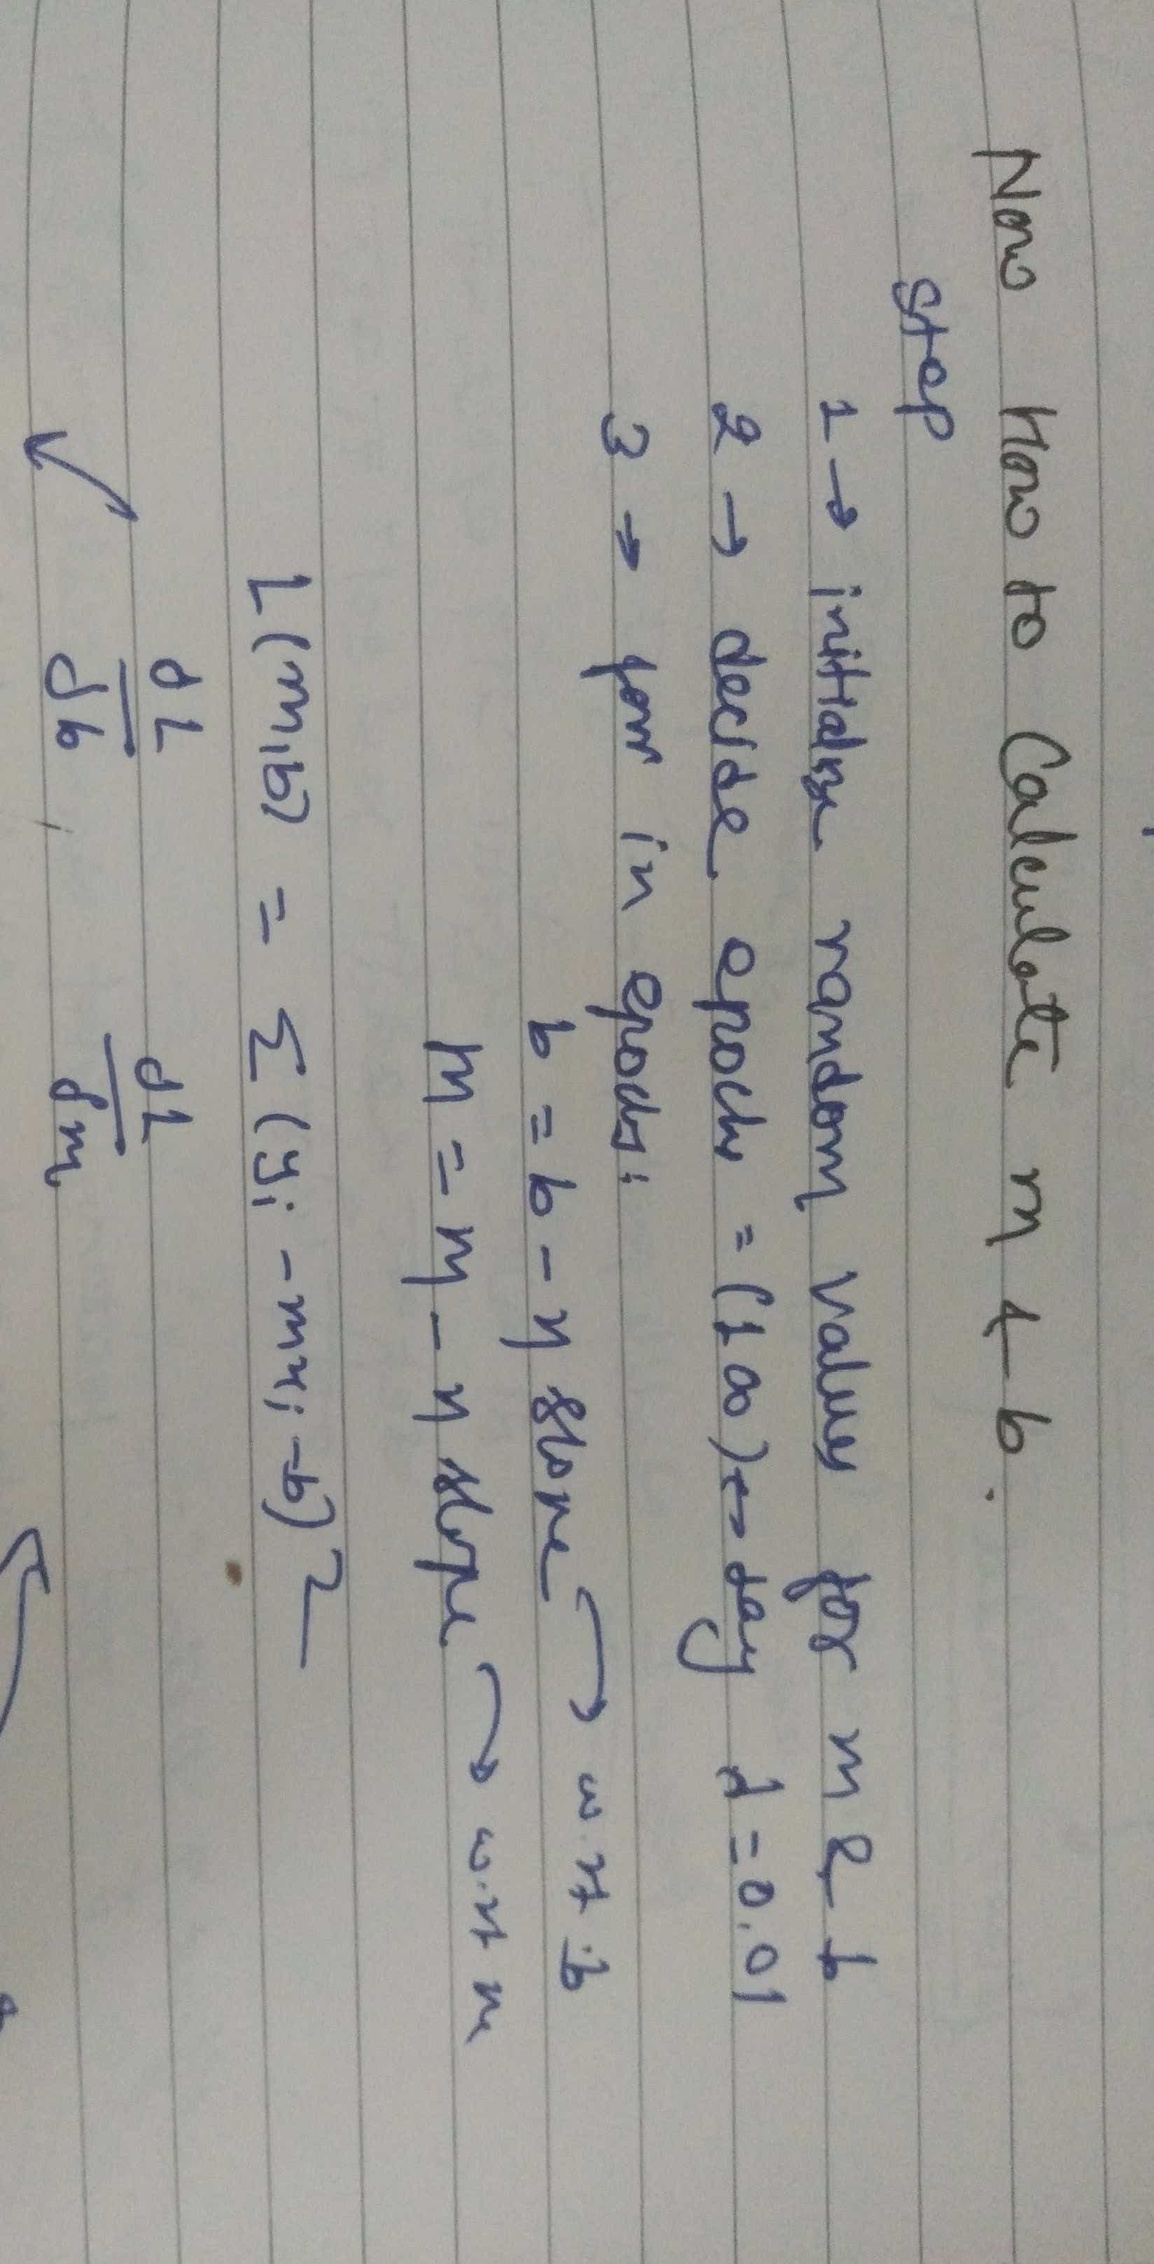 Now How to Calculate m & b.
Step
1 → initialise random values for m & b
2 → decide epochs = (100) ↔ say d = 0.01
3 → for in epochs:
b = b - η slope → w.r.t. b
m = m - η slope → w.r.t m
L(m,b) = Σ (yi - mxi - b)²
dL/db , dL/dm